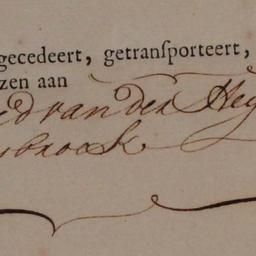 gecedeert, getransporteert,
zen aan
van der Hey
broek